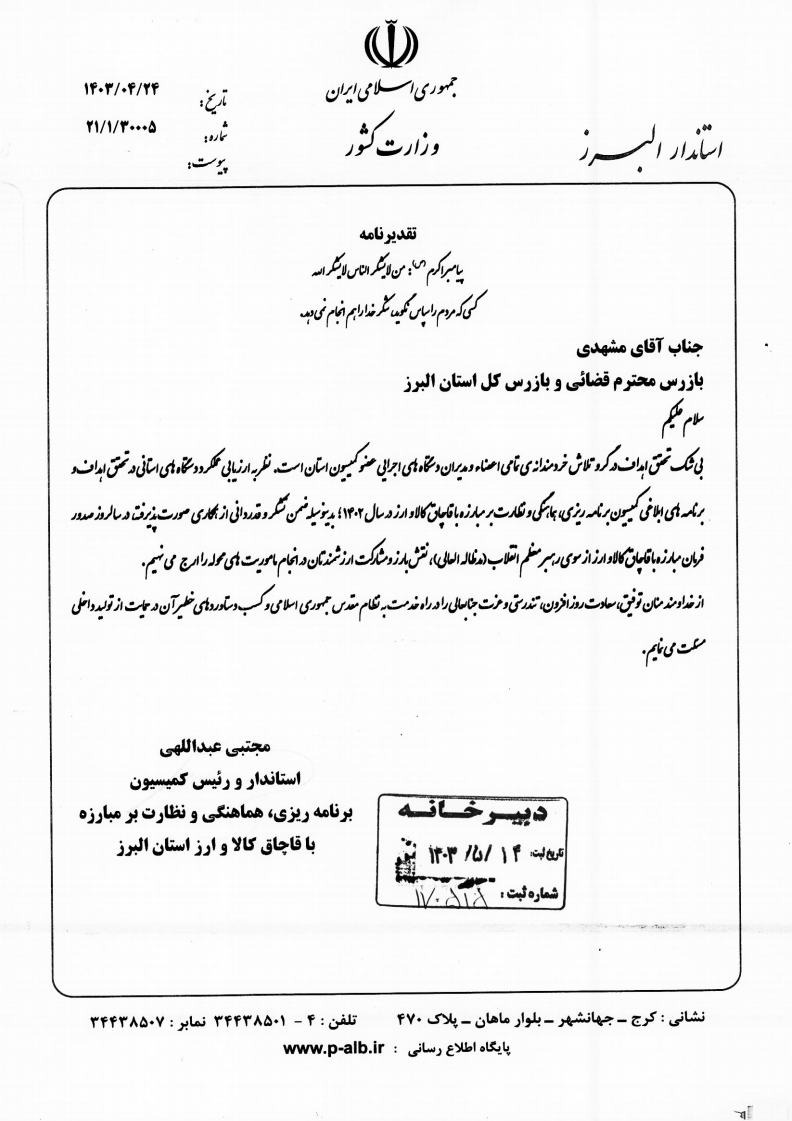 جمهوری اسلامی ایران
وزارت کشور
استاندار البرز
تاریخ: ۱۴۰۳/۰۴/۲۴
شماره: ۲۱/۱/۳۰۰۰۵
پیوست:
تقدیرنامه
پیامبر اکرم (ص): من لایشکر الناس لایشکر الله
کسی که مردم را سپاس نگوید، شکر خدا را هم انجام نمی دهد.
جناب آقای مشهدی
بازرس محترم قضائی و بازرس کل استان البرز
سلام علیکم
بی شک تحقق اهداف در گرو تلاش خردمندانه ی تمامی اعضاء و مدیران دستگاه های اجرایی عضو کمیسیون استان است. نظر به ارزیابی عملکرد دستگاه های استانی در تحقق اهداف و
برنامه های ابلاغی کمیسیون برنامه ریزی، هماهنگی و نظارت بر مبارزه با قاچاق کالا و ارز در سال ۱۴۰۲؛ بدینوسیله ضمن تشکر و قدردانی از همکاری صورت پذیرفته در سالروز صدور
فرمان مبارزه با قاچاق کالا و ارز از سوی رهبر معظم انقلاب (مدظله العالی)، نقش بارز و مشارکت ارزشمندتان در انجام ماموریت های محوله را ارج می نهیم.
از خداوند منان توفیق، سعادت روزافزون، تندرستی و عزت جنابعالی را در راه خدمت به نظام مقدس جمهوری اسلامی و کسب دستاوردهای خطیر آن در حمایت از تولید داخلی
مسئلت می نمایم.
مجتبی عبداللهی
استاندار و رئیس کمیسیون
برنامه ریزی، هماهنگی و نظارت بر مبارزه
با قاچاق کالا و ارز استان البرز
دبیرخانه
تاریخ ثبت: ۱۴۰۳/۵/۱۴
شماره ثبت:
نشانی : کرج – جهانشهر – بلوار ماهان – پلاک ۴۷۰ تلفن : ۴ - ۳۴۴۳۸۵۰۱ نمابر : ۳۴۴۳۸۵۰۷
پایگاه اطلاع رسانی : www.p-alb.ir